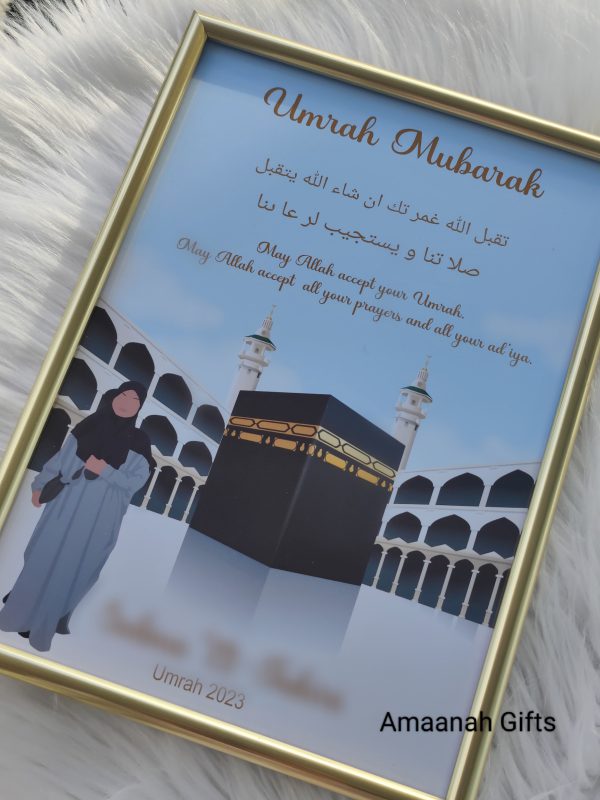 Umrah Mubarak
تقبل الله غمر تك ان شاء الله يتقبل
صلا تنا و يستجيب لر عا ىنا
May Allah accept your Umrah.
May Allah accept all your prayers and all your ad'iya.
Umrah 2023
Amaanah Gifts